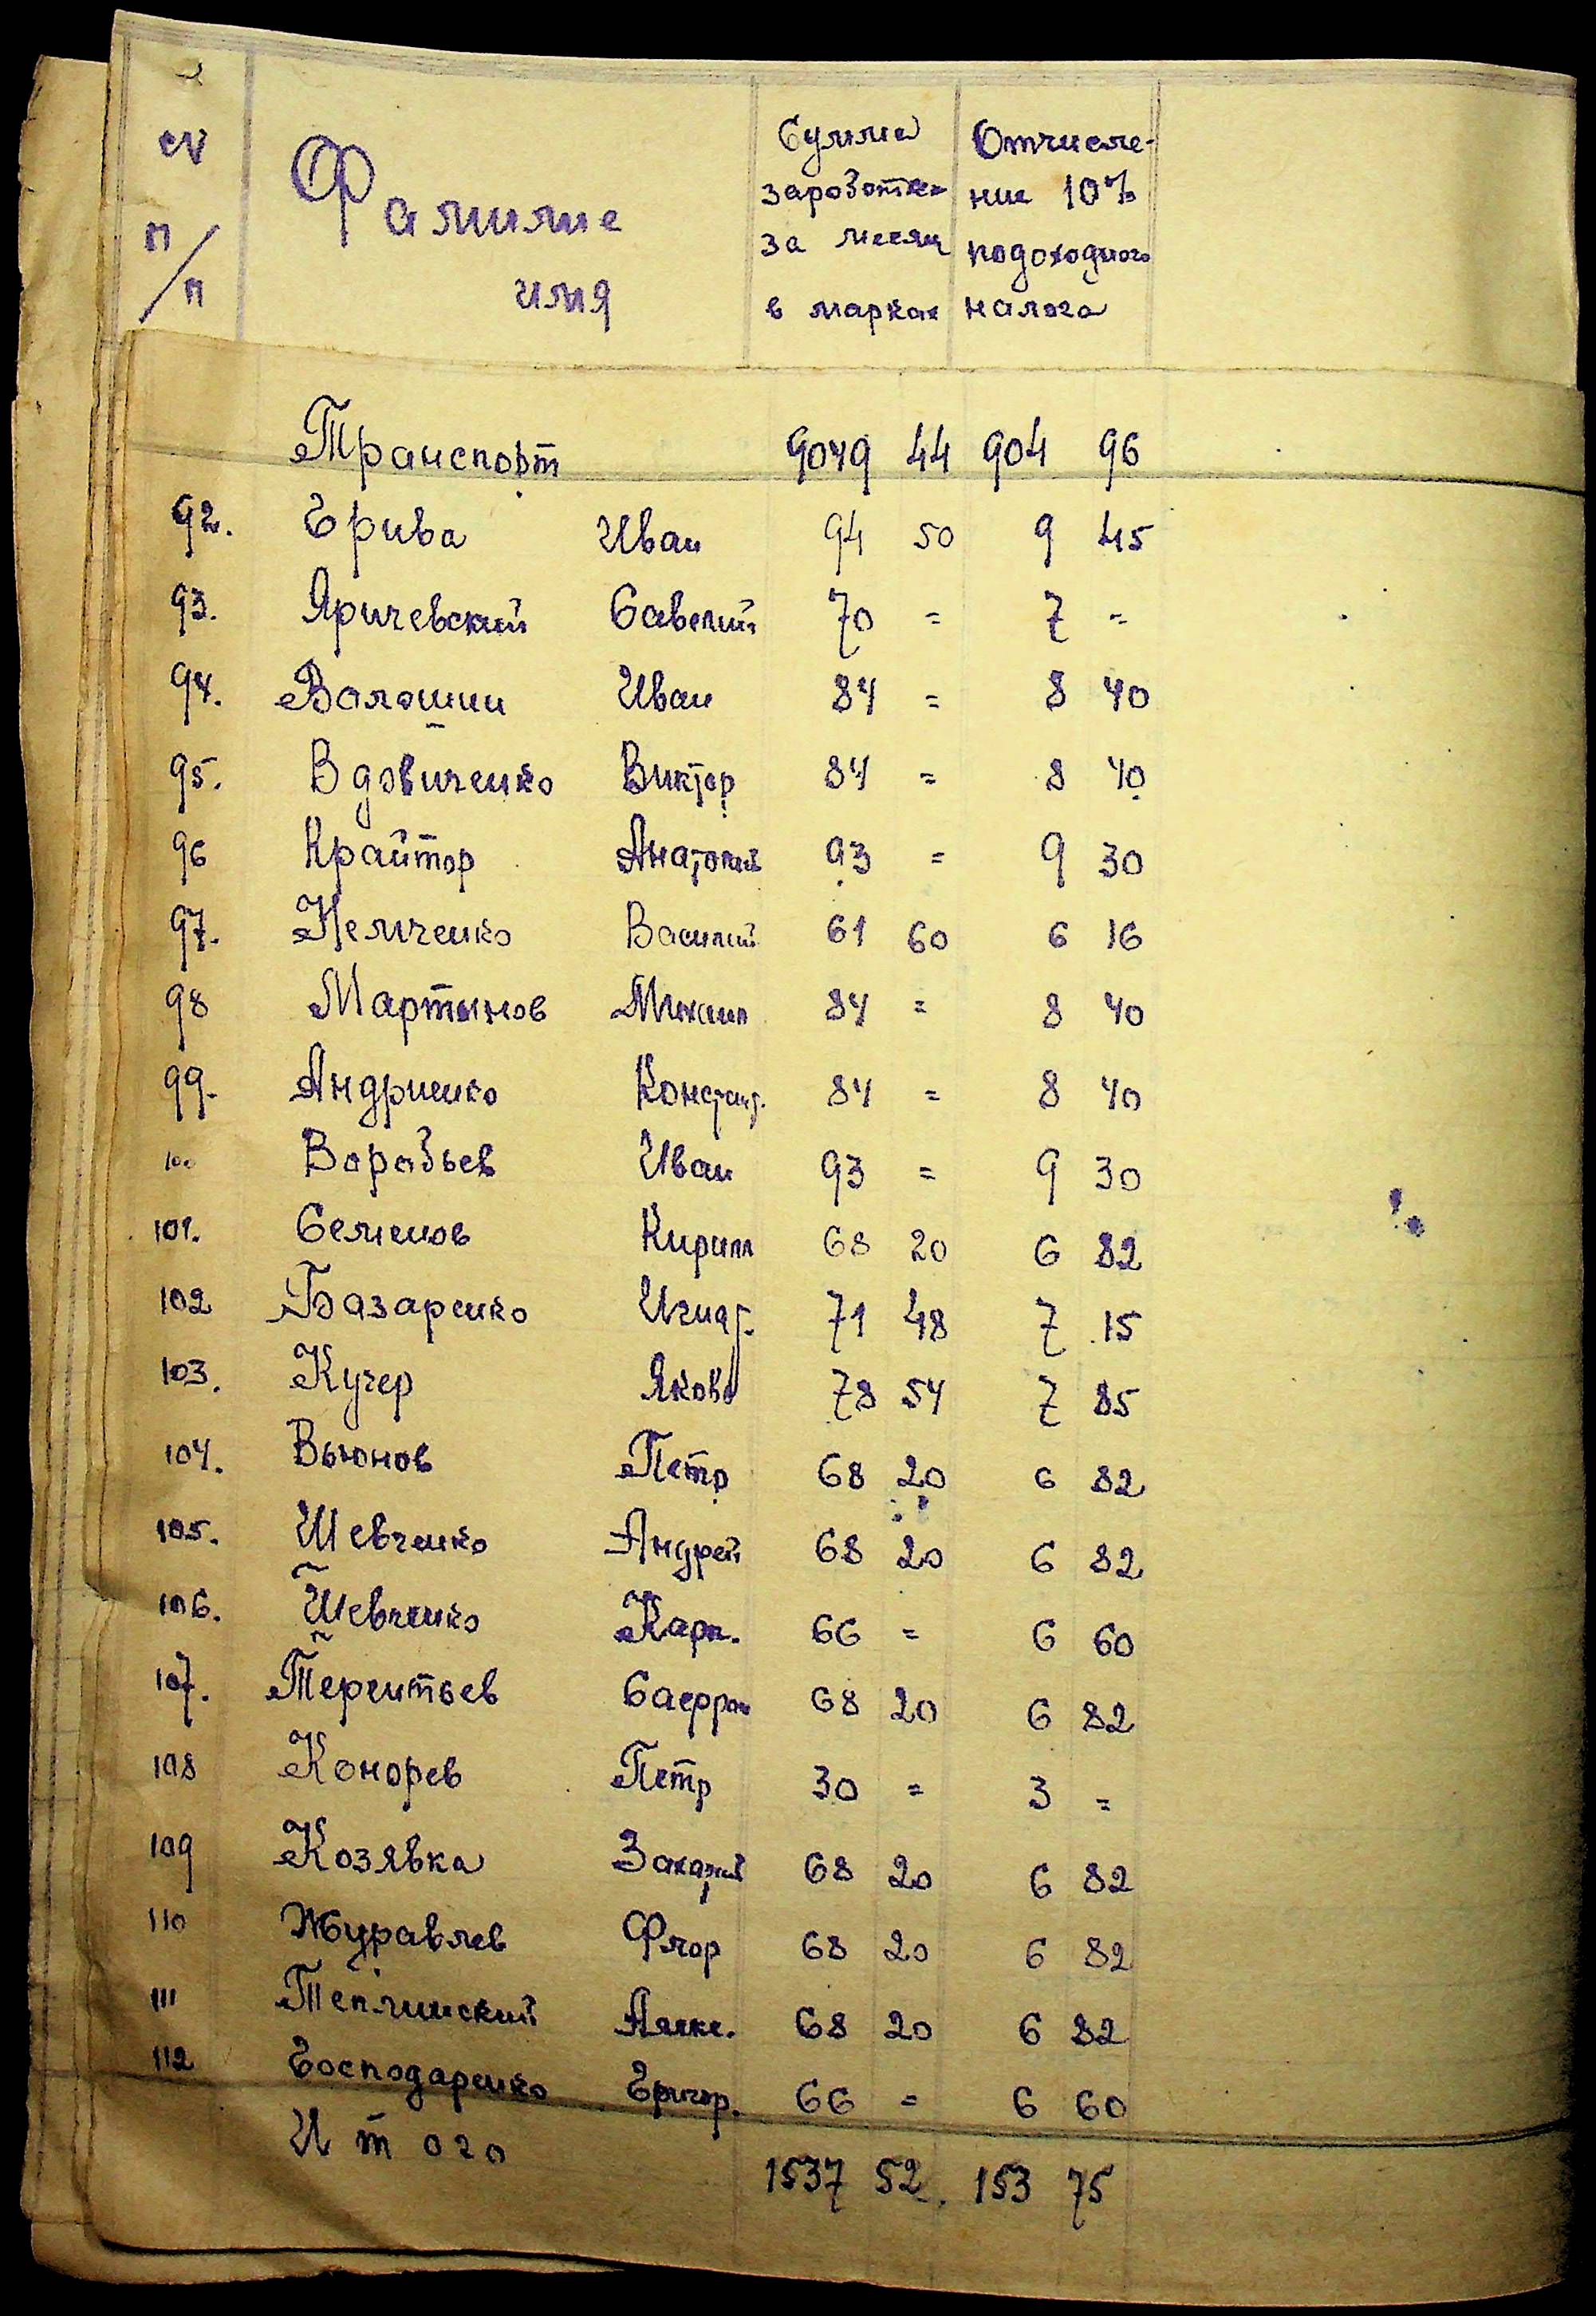 № п/п
Фамилие имя
Сумма заработка за месяц в марках
Отчисление 10% подоходного налога
Транспорт 9049 44 904 96
92. Грива Иван 94 50 9 45
93. Яричевский Савелий 70 = 7 =
94. Волошин Иван 84 = 8 40
95. Вдовиченко Виктор 84 = 8 40
96 Крайтор Анатолий 93 = 9 30
97. Немченко Василий 61 60 6 16
98 Мартынов Михаил 84 = 8 40
99. Андриенко Констант. 84 = 8 40
100 Воробьев Иван 93 = 9 30
101. Семенов Кирил 68 20 6 82
102 Базаренко Игнат. 71 48 7 15
103. Кучер Яков 78 54 7 85
104. Вьюнов Петр 68 20 6 82
105. Шевченко Андрей 68 20 6 82
106. Шевченко Карп. 66 = 6 60
107. Терентьев 68 20 6 82
108 Конорев Петр 30 = 3 =
109 Козявка Захарий 68 20 6 82
110 Журавлев Флор 68 20 6 82
111 Теплинский Алекс. 68 20 6 82
112 Господаренко Григор. 66 = 6 60
Итого 1537 52. 153 75